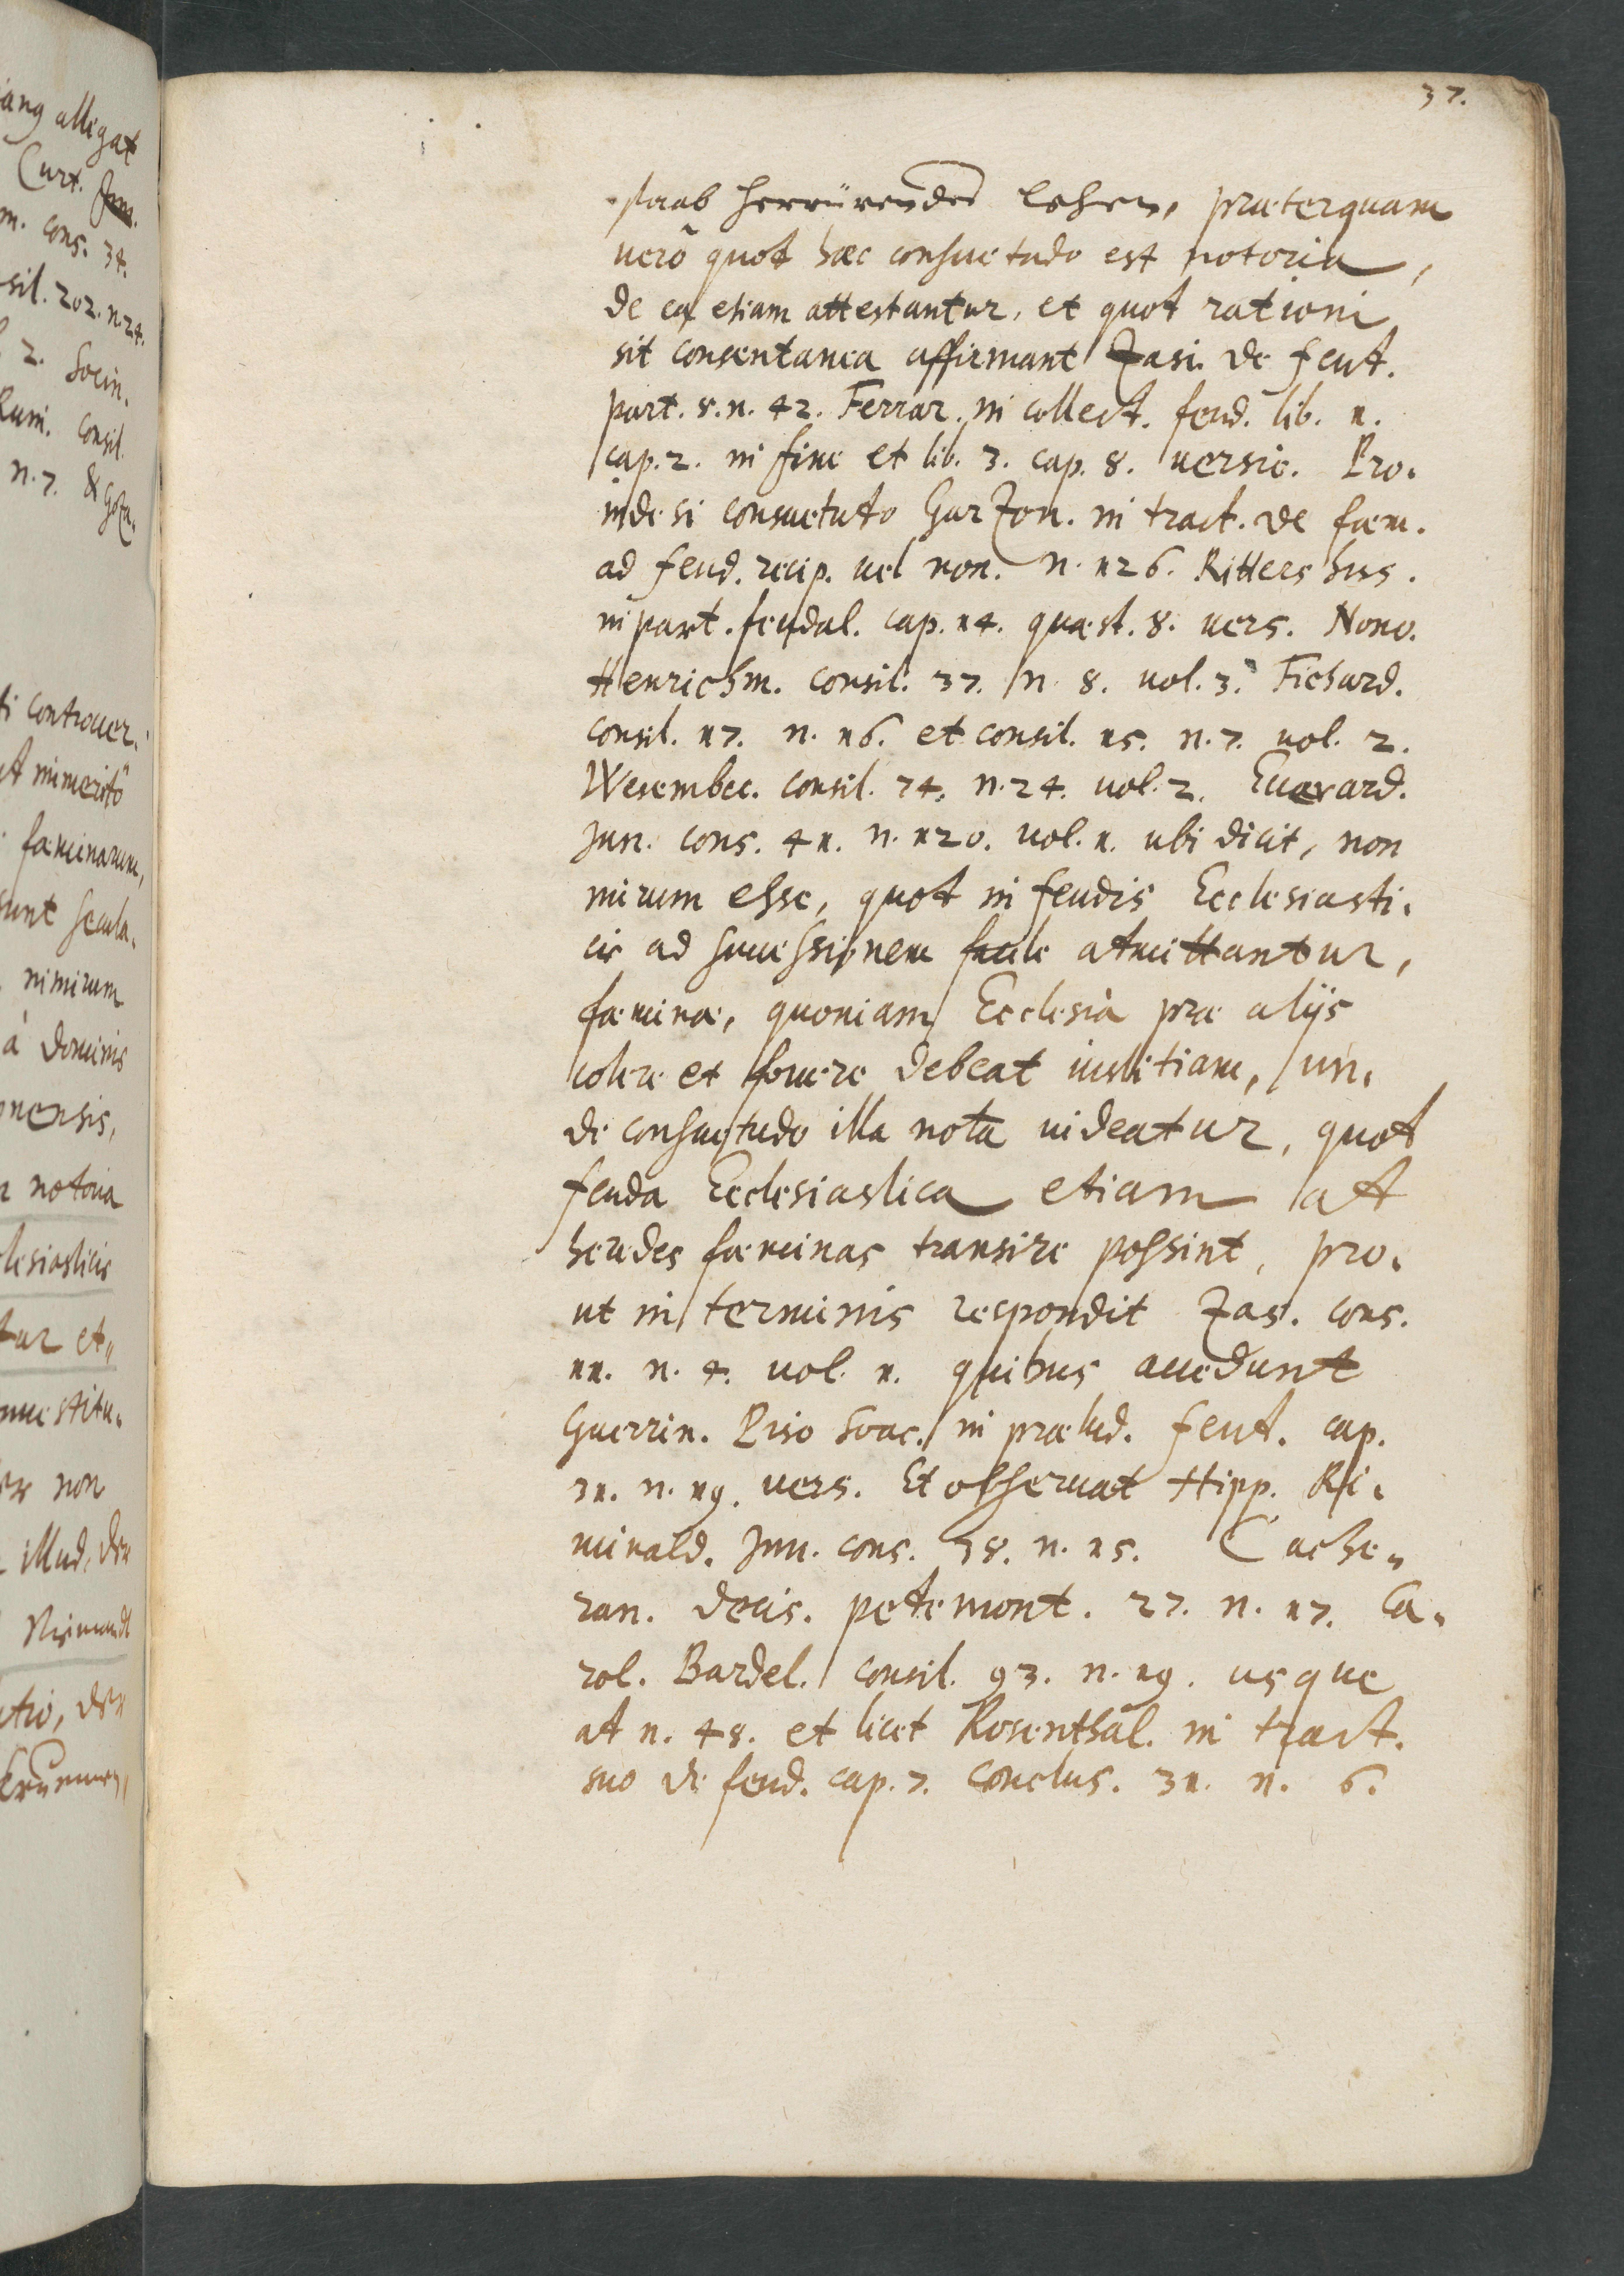 37.
staab herrürenden Lehen, præterquam
verò quot hæc consuetudo est notoria,
de ea etiam attestantur, et quot rationi
sit consentanea affirmant Zasi. de feut.
part. 8. n. 42. Ferrar. in collect. feud. lib. 1.
cap. 2. in fine et lib. 3. cap. 8. versic. Pro-
inde si consuetuto Garzon. in tract. de fæm.
ad feud. recip. vel non. n. 126. Rittershus.
in part. feudal. cap. 14. quæst. 8. vers. Nono.
Henrichm. consil. 37. n. 8. vol. 3. Fichard.
consil. 17. n. 16. et consil. 15. n. 7. vol. 2.
Wesembec. consil. 74. n. 24. vol. 2. Evavard.
Jun. cons. 41. n. 120. vol. 1. ubi dicit, non
mirum esse, quot in feudis Ecclesiasti-
cis ad successionem facile atmittantur,
fæminæ, quoniam Ecclesia præ alijs
colere et fovere debeat iustitiam, un-
de consuetudo illa nota videatur, quot
feuda Ecclesiastica etiam at
heredes fæminas transire possint, pro-
ut in terminis respondit Zas. cons.
11. n. 4. vol. 1. quibus accedunt
Guerrin. Piso Soac. in prælud. feut. cap.
31. n. 19. vers. Et observat Hipp. Ri-
minald. Jun. cons. 38. n. 15. Cache-
ran. decis. petemont. 27. n. 17. Ca-
rol. Bardel. consil. 93. n. 19. usque
at n. 48. et licet Rosenthal. in tract.
suo de feud. cap. 7. conclus. 31. n. 6.
alligat
Curt.
cons. 34.
sil. 202. n. 24.
2. Socin.
Ruin. consil.
n. 7.
ti controver-
et immeritò
fæminarum,
sunt secula-
nimirum
à Dominis
nensis,
notoria
lesiasticis
tur et-
nuestitu-
non
illud, der
Niemandt
der